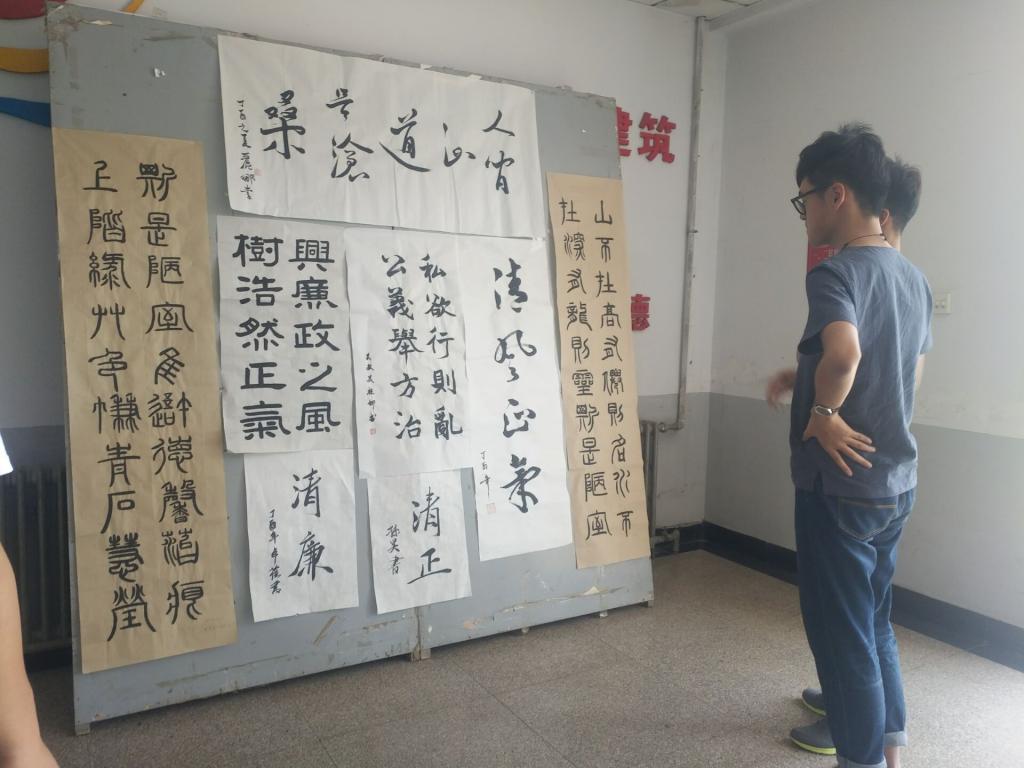 人間
正
道
是滄
桑
丁酉之夏麗娜書
山不在高有僊則名水不
在深有龍則靈斯是陋室
清風正氣
丁酉年
私欲行則亂
公義舉方治
興廉政之風
樹浩然正氣
斯是陋室惟吾德馨苔痕
上階綠艸色青石
清正
清廉
丁酉年
建筑
德